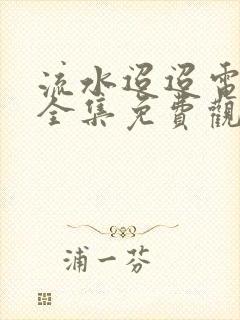 流水迢迢電
全集免費觀
浦一芬